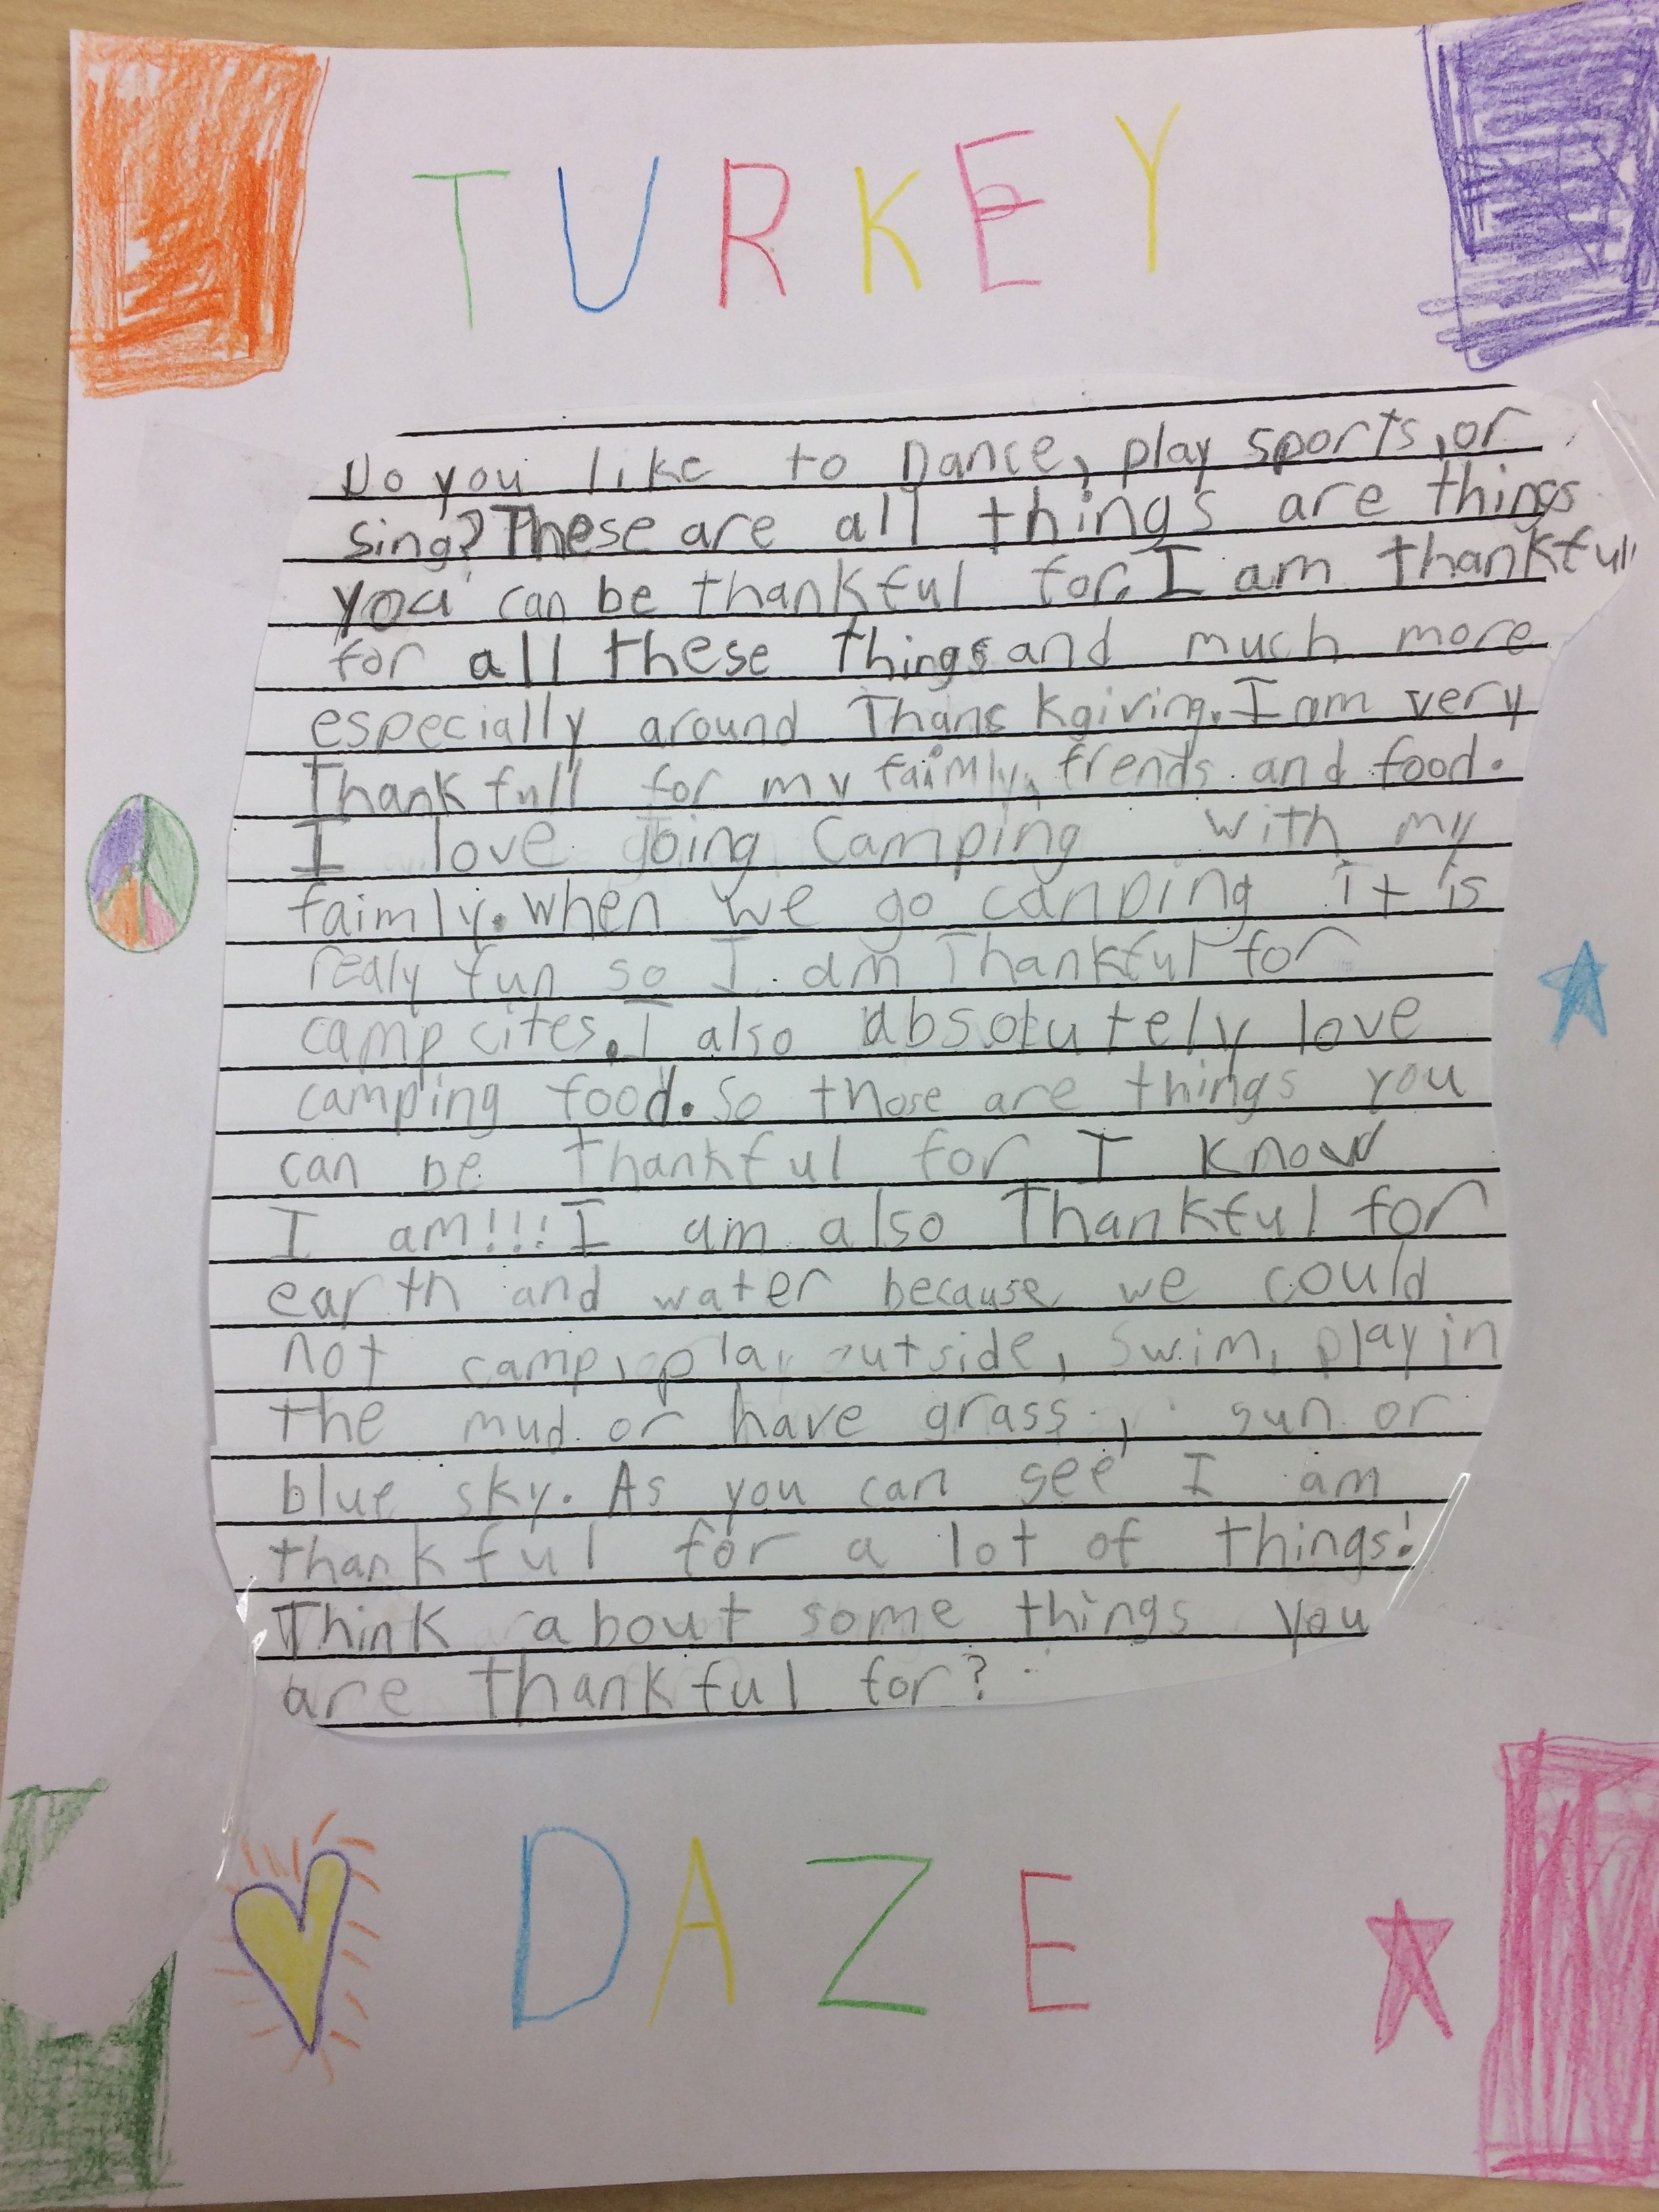 TURKEY
Do you like to Dance, play sports, or
sing? These are all things are things
you can be thankful for. I am thankful
for all these things and much more
especially around Thanskgiving. I am very
Thankfull for my faimly, frends and food.
I love going camping with my
faimly. when we go canping it is
realy fun so I am Thankful for
camp cites. I also absolutely love
camping food. So those are things you
can be thankful for I know
I am!!! I am also Thankful for
earth and water because we could
not camp, play outside, swim, play in
the mud or have grass, sun or
blue sky. As you can see I am
thankful for a lot of things!
Think about some things you
are thankful for?
DAZE